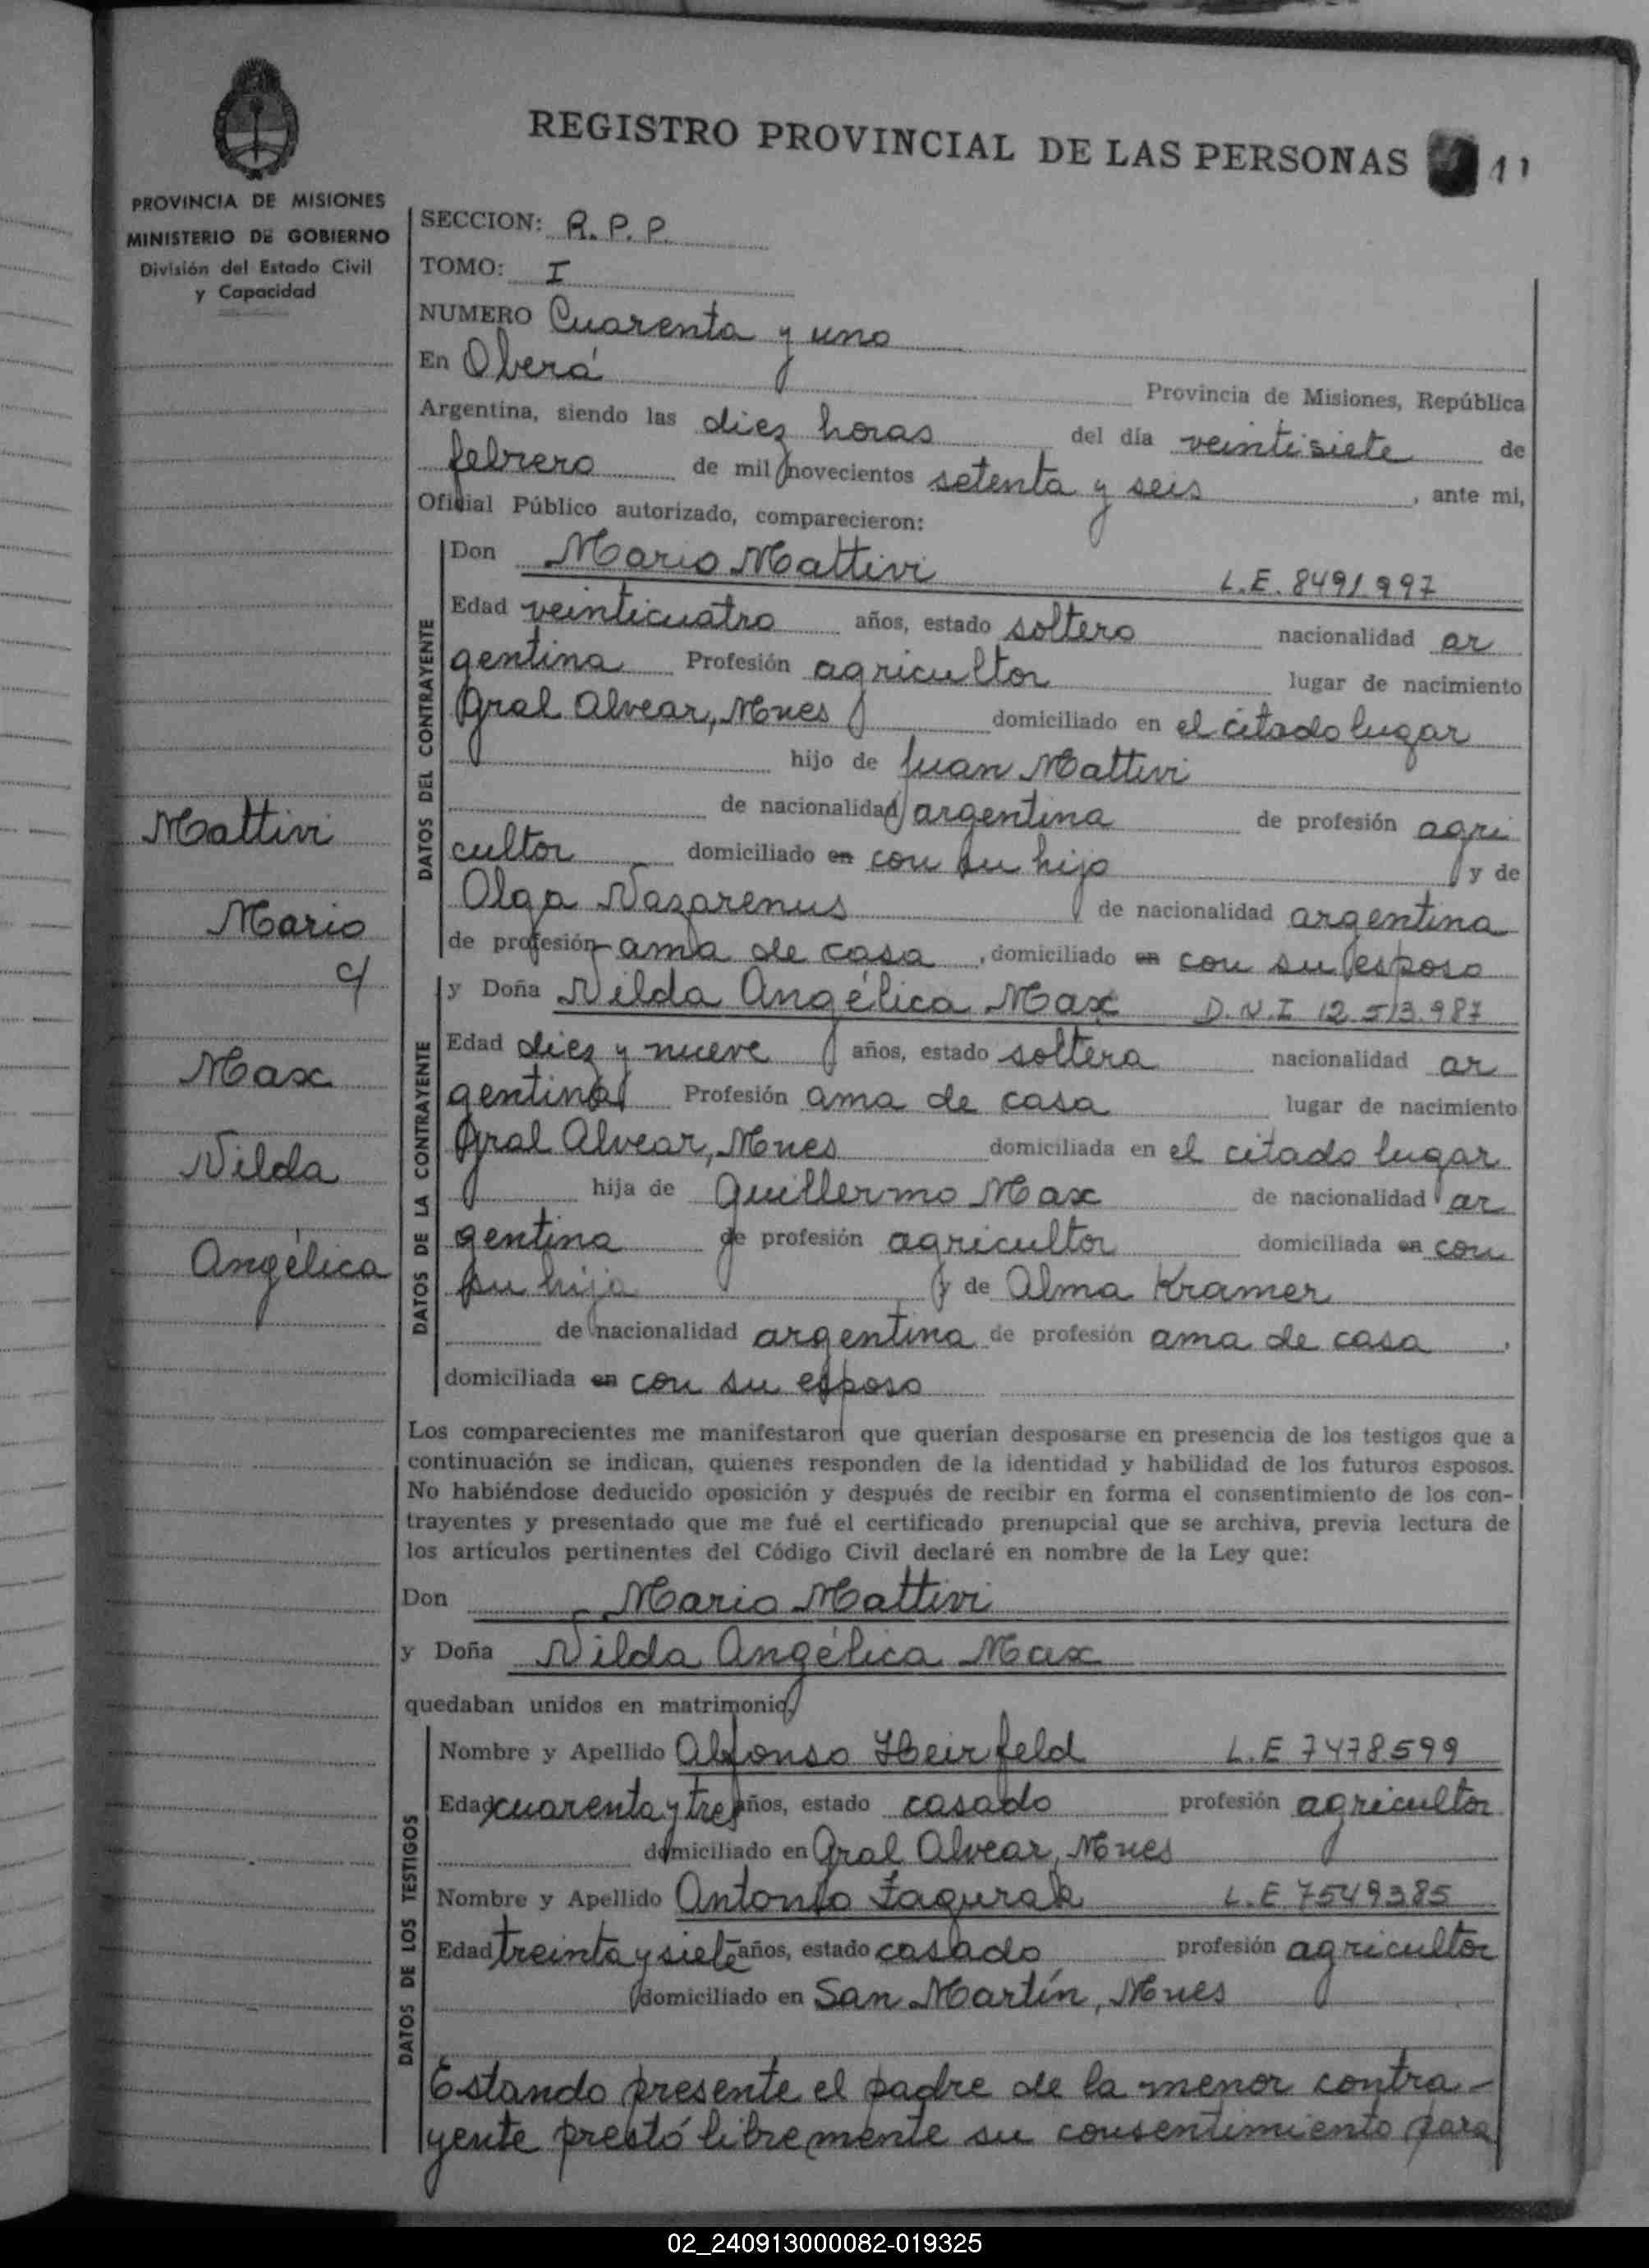 REGISTRO PROVINCIAL DE LAS PERSONAS 11
PROVINCIA DE MISIONES
MINISTERIO DE GOBIERNO
División del Estado Civil
y Capacidad
SECCION: R.P.P.
TOMO: I
NUMERO Cuarenta y uno
En Oberá Provincia de Misiones, República
Argentina, siendo las diez horas del día veintisiete de
febrero de mil novecientos setenta y seis, ante mi,
Oficial Público autorizado, comparecieron:
DATOS DEL CONTRAYENTE
Don Mario Mattivi L.E. 8491997
Edad veinticuatro años, estado soltero nacionalidad ar
gentina Profesión agricultor lugar de nacimiento
Gral Alvear, Mnes domiciliado en el citado lugar
hijo de Juan Mattivi
de nacionalidad argentina de profesión agri
cultor domiciliado en con su hijo y de
Olga Nazarenus de nacionalidad argentina
de profesión ama de casa, domiciliado en con su esposo
Mattivi
Mario
c/
Max
Nilda
Angélica
DATOS DE LA CONTRAYENTE
y Doña Nilda Angélica Max D.N.I 12.513.987
Edad diez y nueve años, estado soltera nacionalidad ar
gentina Profesión ama de casa lugar de nacimiento
Gral Alvear, Mnes domiciliada en el citado lugar
hija de Guillermo Max de nacionalidad ar
gentina de profesión agricultor domiciliada en con
su hija y de Alma Kramer
de nacionalidad argentina de profesión ama de casa,
domiciliada en con su esposo
Los comparecientes me manifestaron que querían desposarse en presencia de los testigos que a
continuación se indican, quienes responden de la identidad y habilidad de los futuros esposos.
No habiéndose deducido oposición y después de recibir en forma el consentimiento de los con-
trayentes y presentado que me fué el certificado prenupcial que se archiva, previa lectura de
los artículos pertinentes del Código Civil declaré en nombre de la Ley que:
Don Mario Mattivi
y Doña Nilda Angélica Max
quedaban unidos en matrimonio,
DATOS DE LOS TESTIGOS
Nombre y Apellido Alfonso Heirfeld L.E 7478599
Edad cuarenta y tres años, estado casado profesión agricultor
domiciliado en Gral Alvear, Mnes
Nombre y Apellido Antonio L.E 7549385
Edad treinta y siete años, estado casado profesión agricultor
domiciliado en San Martín, Mnes
Estando presente el padre de la menor contra-
yente prestó libremente su consentimiento para
02_240913000082-019325